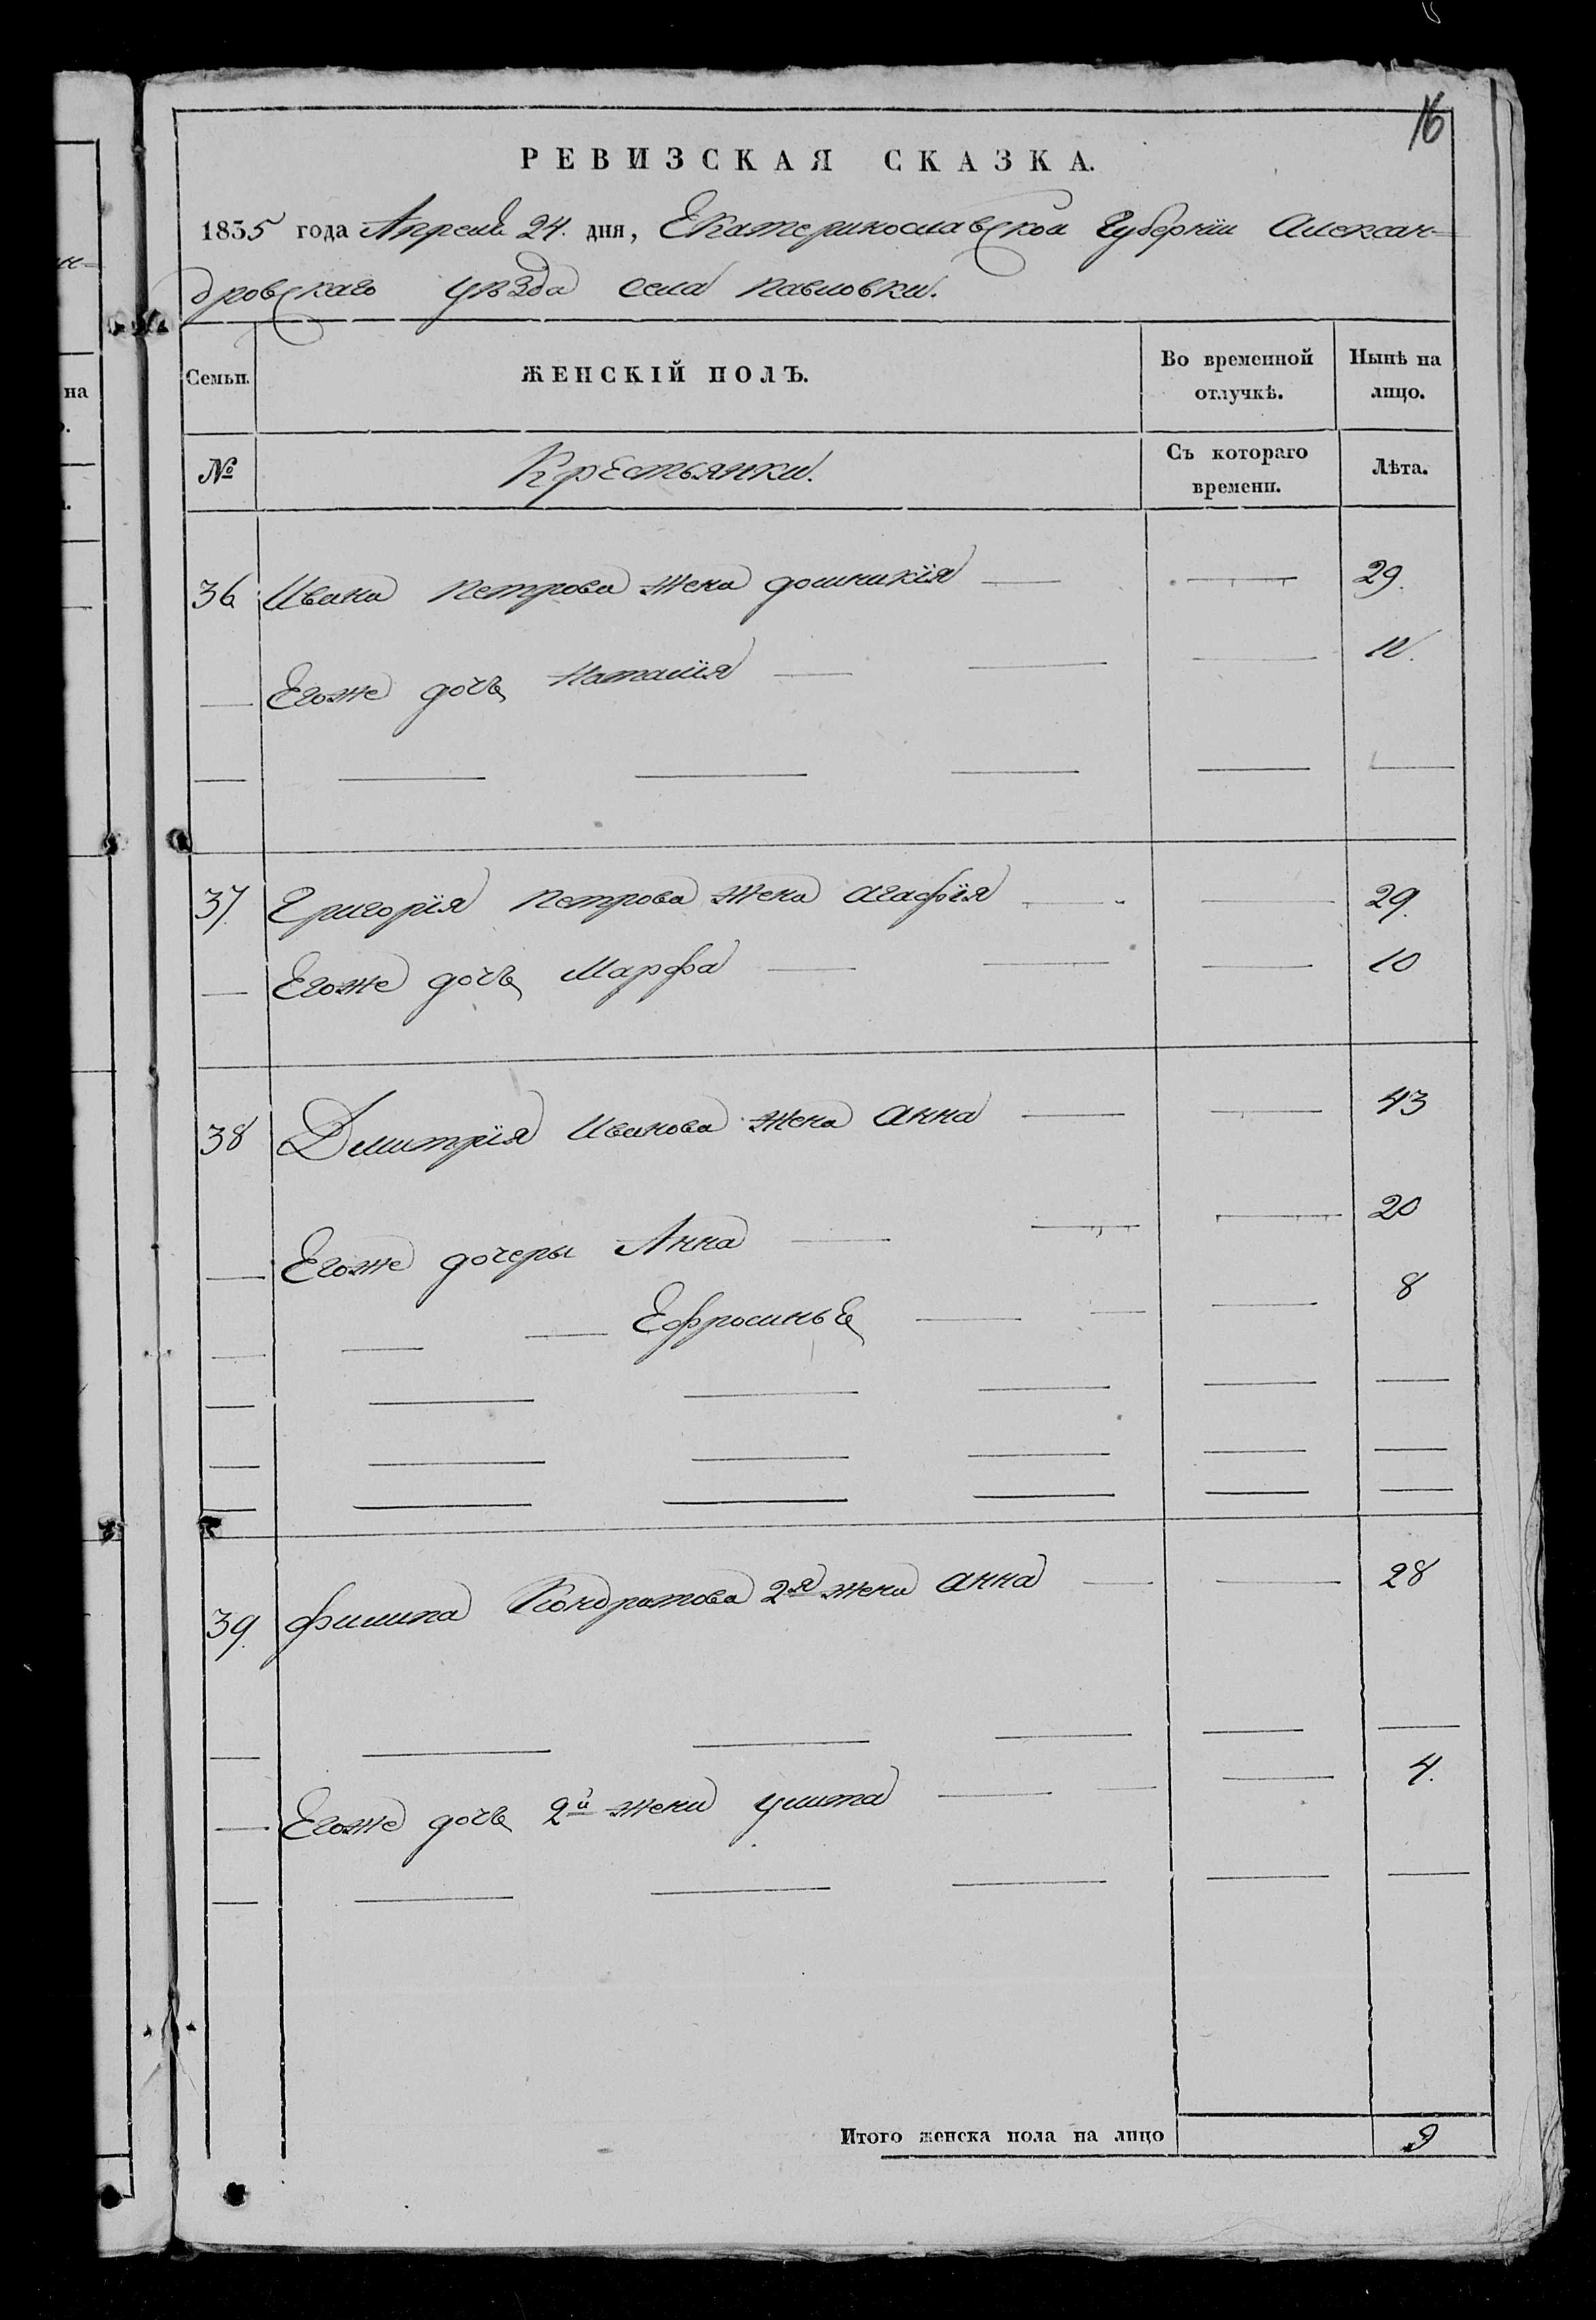 16
РЕВИЗСКАЯ СКАЗКА.
1835 года Апреля 24. дня, Екатеринославской Губернiи Алексан-
дровскаго уѣзда села Павловки.
Семьи. ЖЕНСКІЙ ПОЛЪ. Во временной отлучкѣ. Нынѣ на лицо.
№ Крестьянки. Съ котораго времени. Лѣта.
36 Ивана Петрова жена домникiя 29.
Егоже дочь Наталiя
37. Григорiя Петрова жена агафiя 29.
Егоже дочь Марфа 10
38 Дмитрiя Иванова жена анна 43
Егоже дочеры Анна 20
Ефросинья 8
39. филипа Кондратова 2я жена анна 28
Егоже дочь 2й жены улита 4.
Итого женска пола на лицо 9
на